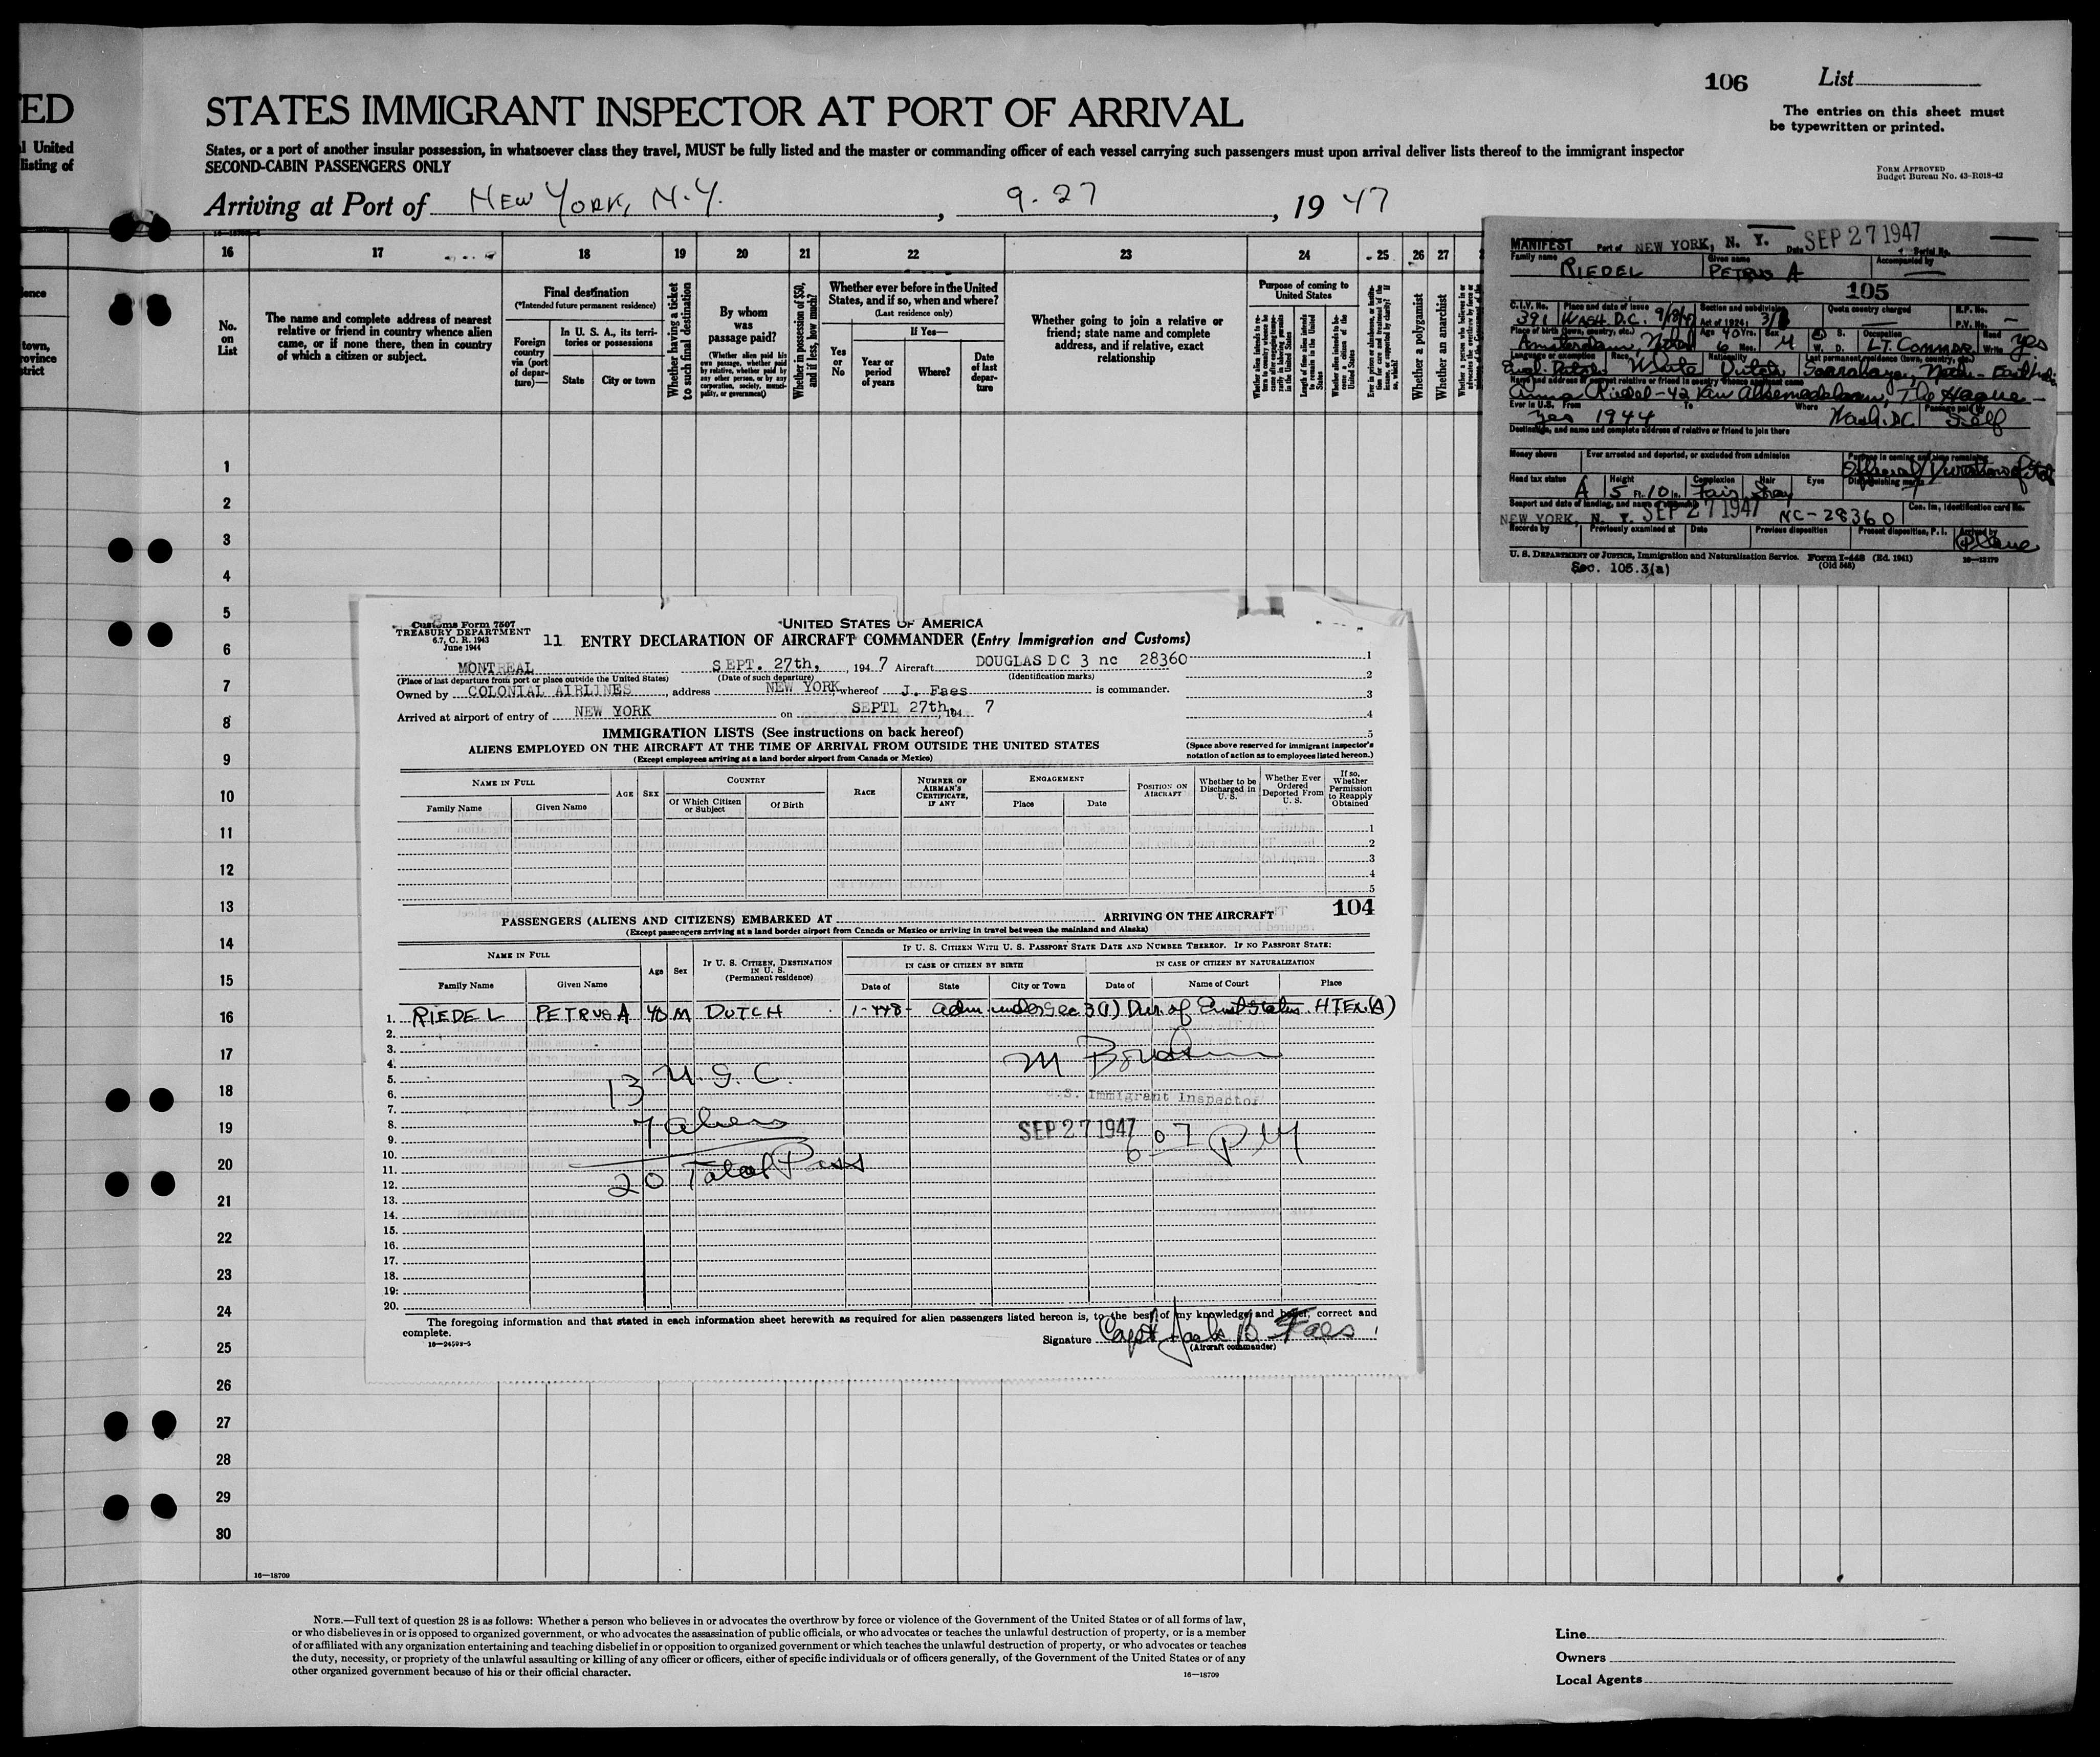 106
List
ED
STATES IMMIGRANT INSPECTOR AT PORT OF ARRIVAL
The entries on this sheet must
be typewritten or printed.
l United
listing of
States, or a port of another insular possession, in whatsoever class they travel, MUST be fully listed and the master or commanding officer of each vessel carrying such passengers must upon arrival deliver lists thereof to the immigrant inspector
SECOND-CABIN PASSENGERS ONLY
FORM APPROVED
Budget Bureau No. 43-R018-42
Arriving at Port of NEW YORK, N.Y. , 9.27 , 19 47
16 17 18 19 20 21 22 23 24 25 26 27
No.
on
List
The name and complete address of nearest
relative or friend in country whence alien
came, or if none there, then in country
of which a citizen or subject.
Final destination
(*Intended future permanent residence)
Foreign
country
via (port
of depar-
ture)—
In U. S. A., its terri-
tories or possessions
State
City or town
Whether having a ticket
to such final destination
By whom
was
passage paid?
(Whether alien paid his
own passage, whether paid
by relative, whether paid by
any other person, or by any
corporation, society, munici-
pality, or government)
Whether in possession of $50,
and if less, how much?
Whether ever before in the United
States, and if so, when and where?
(Last residence only)
Yes
or
No
If Yes—
Year or
period
of years
Where?
Date
of last
depar-
ture
Whether going to join a relative or
friend; state name and complete
address, and if relative, exact
relationship
Purpose of coming to
United States
Whether a polygamist
Whether an anarchist
1
2
3
4
5
6
7
8
9
10
11
12
13
14
15
16
17
18
19
20
21
22
23
24
25
26
27
28
29
30
MANIFEST Port of NEW YORK, N. Y. Date SEP 27 1947 Serial No.
Family name RIEDEL Given name PETRUS A Accompanied by
105
C.I.V. No. Place and date of issue Section and subdivision Quota country charged R.P. No.
391 WASH D.C. Act of 1924: P.V. No.
Place of birth (town, country, etc.) Age 40 Yrs. Sex M S. Occupation Read Yes
Amsterdam, Neth 6 Mos. W. D. LT. COMMDR Write
Language or exemption Race White Nationality Dutch Last permanent residence (town, country, etc.)
Name and address of nearest relative or friend in country whence applicant came
Anna Riedel - 42 Van The Hague -
Ever in U.S. From To Where Passage paid by
Yes 1944 Wash. DC Self
Destination, and name and complete address of relative or friend to join there
Money shown Ever arrested and deported, or excluded from admission Purpose in coming and time remaining
Head tax status Height Complexion Hair Eyes Distinguishing marks
A 5 Ft. 10 In. Fair Gray
Seaport and date of landing, and name of steamship Con. Im. Identification card No.
NEW YORK, N. Y. SEP 27 1947 NC-28360
Records by Previously examined at Date Previous disposition Present disposition, P. I. Arrived by
Plane
U. S. DEPARTMENT OF JUSTICE, Immigration and Naturalization Service. Form I-448 (Ed. 1941)
(Old 548)
16—13179
Sec. 105.3(a)
Customs Form 7507
TREASURY DEPARTMENT
6.7, C. R. 1943
June 1944
UNITED STATES OF AMERICA
11 ENTRY DECLARATION OF AIRCRAFT COMMANDER (Entry Immigration and Customs)
MONTREAL SEPT. 27th, , 194 7 Aircraft DOUGLAS DC 3 nc 28360
(Place of last departure from port or place outside the United States) (Date of such departure) (Identification marks)
Owned by COLONIAL AIRLINES , address NEW YORK whereof J. Faes is commander.
Arrived at airport of entry of NEW YORK on SEPTL 27th, 194 7
1
2
3
4
5
IMMIGRATION LISTS (See instructions on back hereof)
ALIENS EMPLOYED ON THE AIRCRAFT AT THE TIME OF ARRIVAL FROM OUTSIDE THE UNITED STATES
(Except employees arriving at a land border airport from Canada or Mexico)
(Space above reserved for immigrant inspector's
notation of action as to employees listed hereon.)
NAME IN FULL
Family Name Given Name
AGE SEX
COUNTRY
Of Which Citizen
or Subject
Of Birth
RACE
NUMBER OF
AIRMAN'S
CERTIFICATE,
IF ANY
ENGAGEMENT
Place Date
POSITION ON
AIRCRAFT
Whether to be
Discharged in
U. S.
Whether Ever
Ordered
Deported From
U. S.
If so,
Whether
Permission
to Reapply
Obtained
1
2
3
4
5
104
PASSENGERS (ALIENS AND CITIZENS) EMBARKED AT ARRIVING ON THE AIRCRAFT
(Except passengers arriving at a land border airport from Canada or Mexico or arriving in travel between the mainland and Alaska)
NAME IN FULL
Family Name Given Name
Age Sex
IF U. S. CITIZEN, DESTINATION
IN U. S.
(Permanent residence)
IF U. S. CITIZEN WITH U. S. PASSPORT STATE DATE AND NUMBER THEREOF. IF NO PASSPORT STATE:
IN CASE OF CITIZEN BY BIRTH IN CASE OF CITIZEN BY NATURALIZATION
Date of State City or Town Date of Name of Court Place
1. RIEDEL PETRUS A 40 M DUTCH 1-448- adm under Sec 3(1) Dur. of HTEx.(A)
2.
3.
4. M
5. 13 U.S.C.
6. U.S. Immigrant Inspector
7.
8. 7 aliens SEP 27 1947 6 07 PM
9.
10.
11. 20 Total Pass
12.
13.
14.
15.
16.
17.
18.
19.
20.
The foregoing information and that stated in each information sheet herewith as required for alien passengers listed hereon is, to the best of my knowledge and belief, correct and
complete.
16—24593-5
Signature Capt Jack B Faes
(Aircraft commander)
16—18709
NOTE.—Full text of question 28 is as follows: Whether a person who believes in or advocates the overthrow by force or violence of the Government of the United States or of all forms of law,
or who disbelieves in or is opposed to organized government, or who advocates the assassination of public officials, or who advocates or teaches the unlawful destruction of property, or is a member
of or affiliated with any organization entertaining and teaching disbelief in or opposition to organized government or which teaches the unlawful destruction of property, or who advocates or teaches
the duty, necessity, or propriety of the unlawful assaulting or killing of any officer or officers, either of specific individuals or of officers generally, of the Government of the United States or of any
other organized government because of his or their official character.
16—18709
Line
Owners
Local Agents